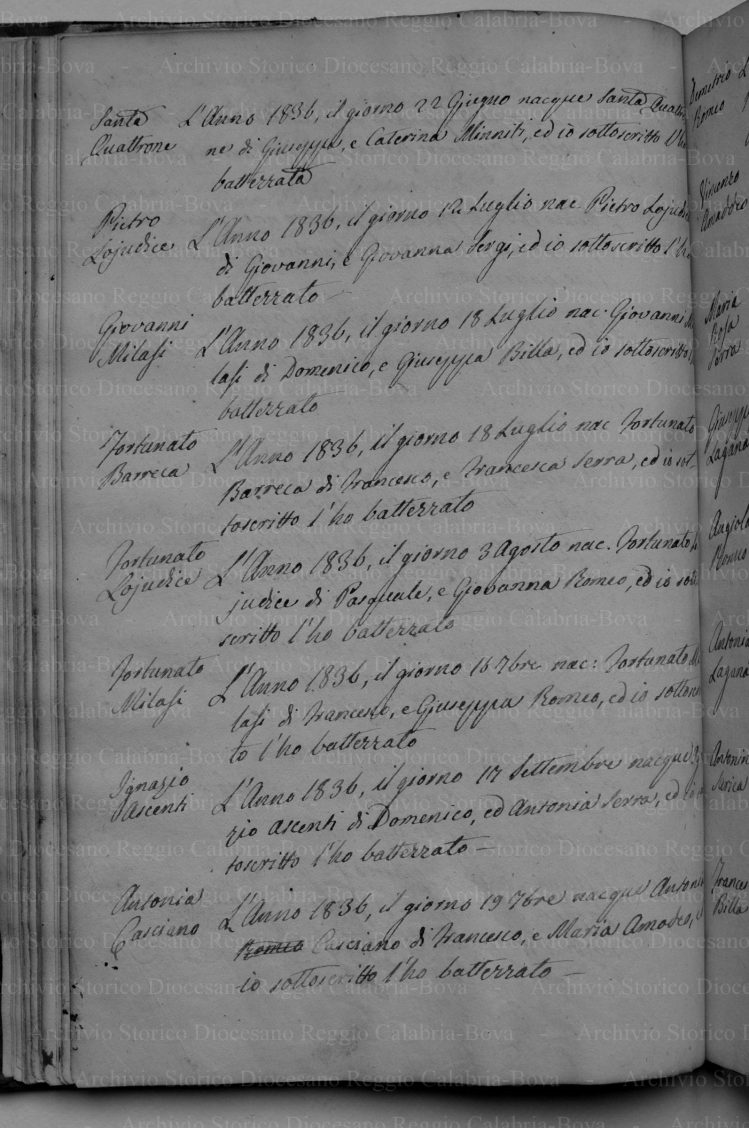 Santa Quattrone
L'Anno 1836, il giorno 22 Giugno nacque Santa Quattro
ne di Giuseppe, e Caterina Minniti, ed io sottoscritto l'ho
batterzata
Pietro Lojudice
L'Anno 1836, il giorno 12 Luglio nac Pietro Lojudice
di Giovanni, e Giovanna Sergi, ed io sottoscritto l'ho
batterzato
Giovanni Milasi
L'Anno 1836, il giorno 18 Luglio nac. Giovanni Mi
lasi di Domenico, e Giuseppa Billa, ed io sottoscritto
batterzato
Fortunato Barreca
L'Anno 1836, il giorno 18 Luglio nac Fortunato
Barreca di Francesco, e Francesca Serra, ed io sot
toscritto l'ho batterzato
Fortunato Lojudice
L'Anno 1836, il giorno 3 Agosto nac. Fortunato Lo
judice di Pasquale, e Giovanna Romeo, ed io sotto
scritto l'ho batterzato
Fortunato Milasi
L'Anno 1836, il giorno 16 7bre nac: Fortunato Mi
lasi di Francesc, e Giuseppa Romeo, ed io sottoscrit
to l'ho batterzato
Ignazio Ascenti
L'Anno 1836, il giorno 17 Settembre nacque
zio Ascenti di Domenico, ed Antonia Serra, ed io
toscritto l'ho batterzato
Antonia Casciano
L'Anno 1836, il giorno 19 7bre nacque Antonia
Romeo Casciano di Francesco, e Maria Amodeo,
io sottoscritto l'ho batterzato
Demetrio
Romeo
Vincenzo
Amaddeo
Maria
Rosa
Serra
Lagana
Angiola
Romeo
Antonia
Lagana
Antonin
Billa
Archivio Storico Diocesano Reggio Calabria-Bova